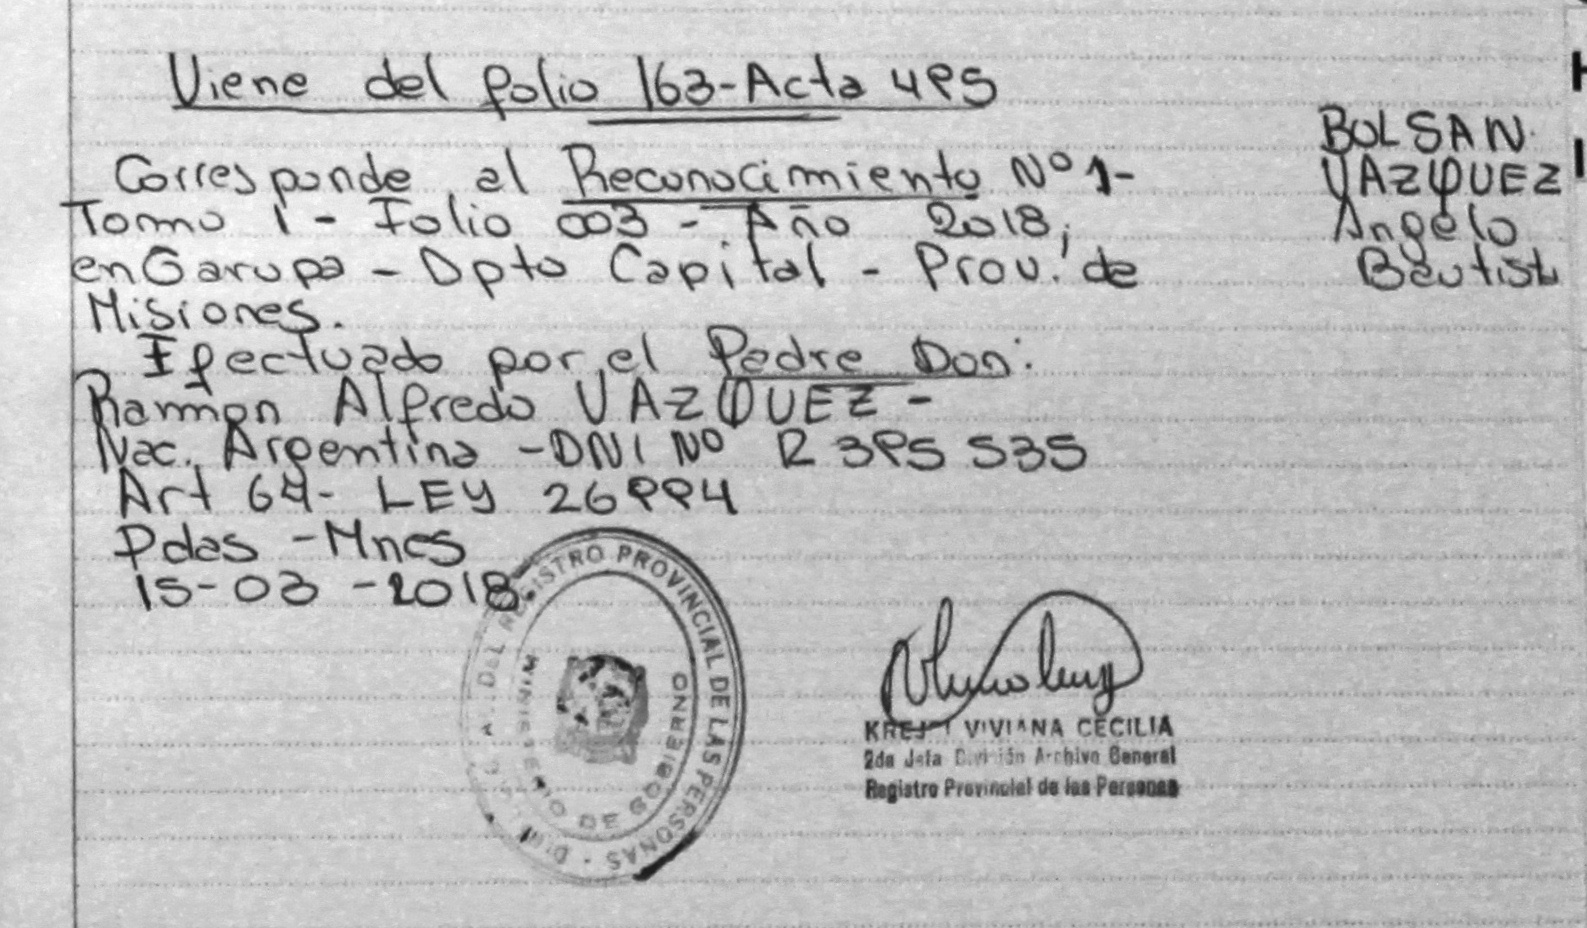 Viene del folio 163-Acta 495
Corresponde al Reconocimiento Nº 1-
Tomo 1 - Folio 003 - Año 2018,
en Garupa - Dpto Capital - Prov. de
Misiones.
Efectuado por el Padre Don:
Ramon Alfredo VAZQUEZ -
Nac. Argentina - DNI Nº 12 395 535
Art 64- LEY 26994
Pdas - Mnes
15-03-2018.
BOLSAN
VAZQUEZ
Angelo
Bautist
DEL REGISTRO PROVINCIAL DE LAS PERSONAS
MINISTERIO DE GOBIERNO
VIVIANA CECILIA
2da Jefa División Archivo General
Registro Provincial de las Personas